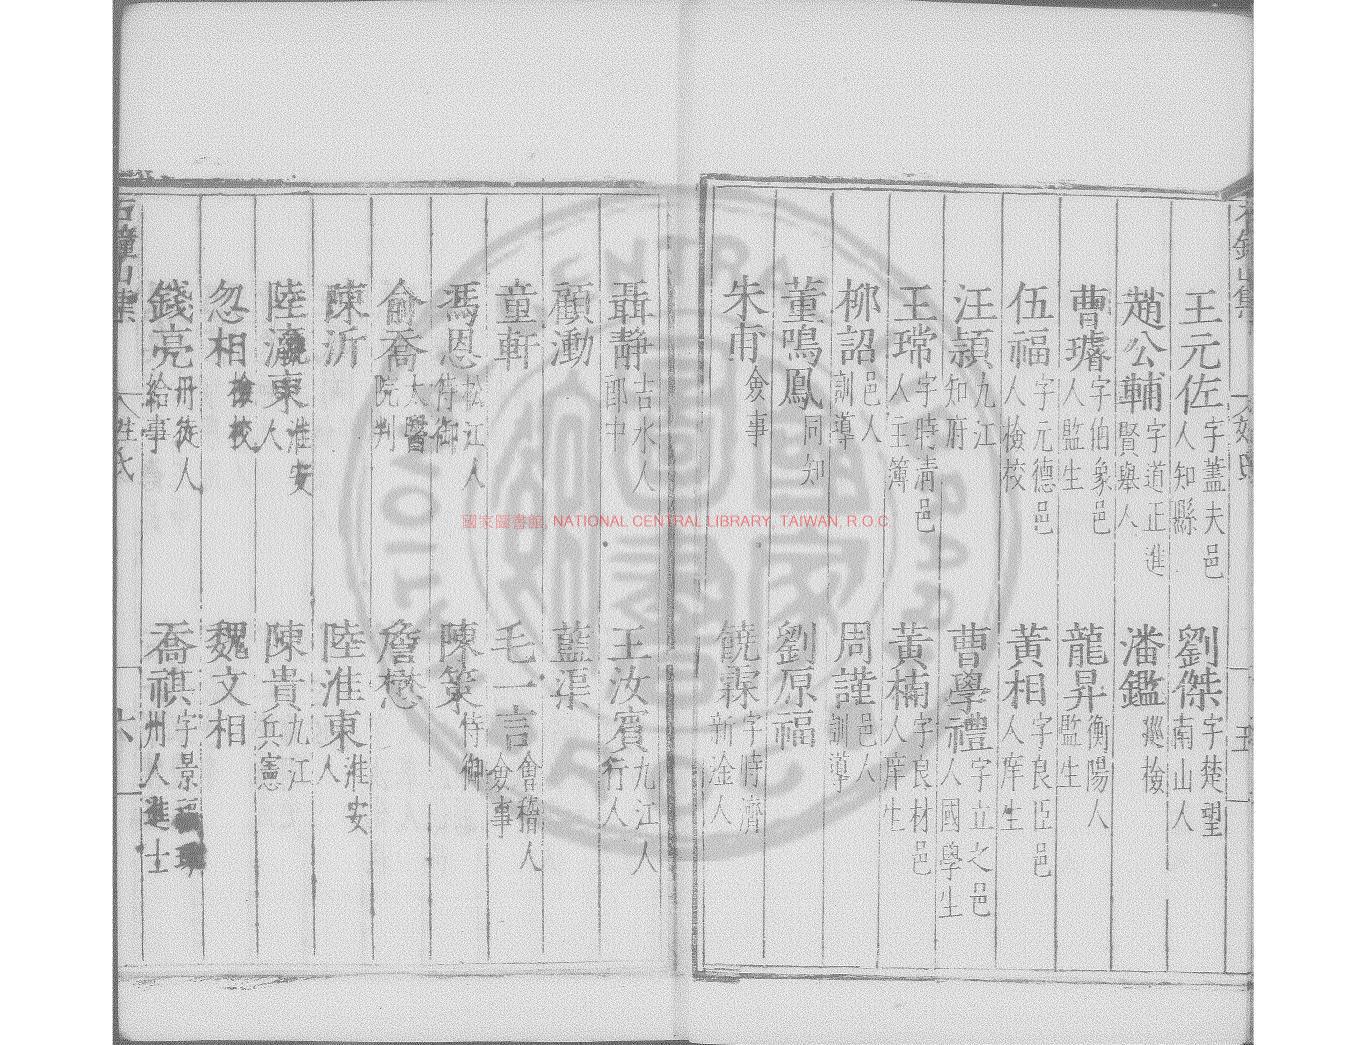 王元佐字蓋夫邑人知縣
劉傑字楚望南山人
趙公輔字道正進賢舉人
潘鑑巡檢
曹璿字伯象邑人監生
龍昇衡陽人監生
伍福字元德邑人檢校
黃相字良臣邑人庠生
汪頴九江知府
曹學禮字立之邑人國學生
王瑺字時清邑人主簿
黃楠字良材邑人庠生
柳詔邑人訓導
周謹邑人訓導
董鳴鳳同知
劉原福
朱甫僉事
饒霖字時濟新淦人
聶靜吉水人郎中
王汝賓九江人行人
顧勳
藍渠
童軒
毛一言會稽人僉事
馮恩松江人侍御
陳策侍御
俞喬太醫院判
詹
陳沂
陸淮東淮安人
陸瀛東淮安人
陳貴九江兵憲
忽相檢校
魏文相
錢亮丹徒人給事
喬祺字景州人進士
石鐘山集
姓氏
五
六
國家圖書館, NATIONAL CENTRAL LIBRARY, TAIWAN, R.O.C